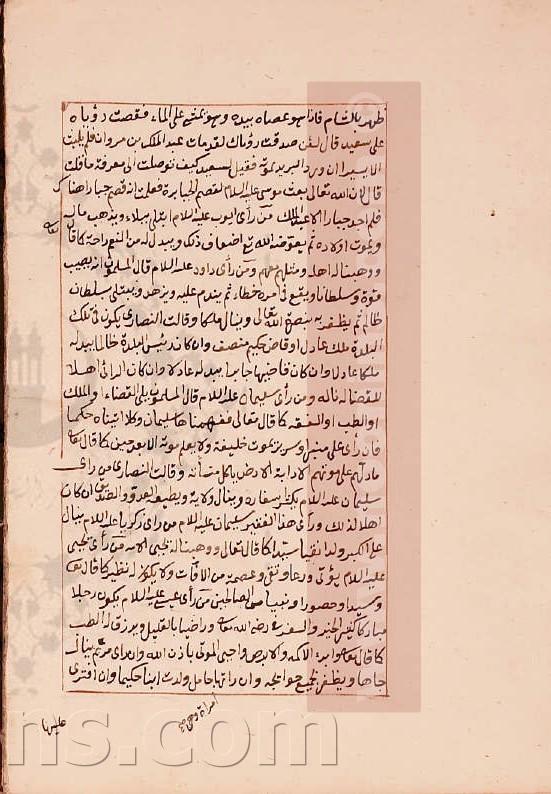 ظهر بالشام فاذا هو عصاه بيده وهو يمشى على الماء فقصت رؤياه
على سعيد قال لئن صدقت رؤياك لقد مات عبد الملك بن مروان فلم يلبث
الا يسيرا ان ورد البريد بموته فقيل لسعيد كيف توصلت الى معرفة ما قلت
قال ان الله تعالى بعث موسى عليه السلام لقصم الجبابرة فعلمت انه قصم جبارا هناك
فلم اجد جبارا الا عبد الملك من رأى ايوب عليه السلام ابتلى ببلاء ويذهب ماله
ويموت اولاده ثم يعوضه الله تع اضعاف ذلك ويبدل له من النعم راحة كما قال تعا
ووهبنا له اهله ومثلهم معهم ومن رأى داود عليه السلام قال المسلمون انه يصيب
قوة وسلطانا ويقع فى امره خطاء ثم يندم عليه ويزهد ويبتلى بسلطان
ظالم ثم يظفر به بنصرة الله تعالى وينال ملكا وقالت النصارى يكون فى تلك
البلدة ملك عادل او قاض حكيم منصف وان كان رئيس البلدة ظالما يبدله
ملكا عادلا وان كان قاضيها جابرا يبدله عادلا وان كان الرائى اهلا
للقضا له ناله ومن رأى سليمان عليه السلام قال المسلمون يلى القضاء والملك
او الطب او الفقه كما قال تعالى ففهمناها سليمان وكلا اتيناه حكما
فان رأى على منبر او سرير يموت خليفة ولا يعلم موته الا بعد حين كما قال تعا
ما دلهم على موته الا دابة الارض تاكل منسأته وقالت النصارى من رأى
سليمان عليه السلام يكثر سفاره وينال ولاية ويطيعه العدو والصديق ان كان
اهلا لذلك ورأى هذا الفقير سليمان عليه السلام من رأى زكريا عليه السلام ينال
على الكبر ولدا نقيا سيدا كما قال تعالى ووهبنا له يحيى الاية من رأى يحيى
عليه السلام يؤتى ورعا وتقى وعصمة من الافات ولا يكون له نظير كما قال تعا
وسيدا وحصورا ونبيا من الصالحين من رأى عيسى عليه السلام يكون رجلا
مباركا كثير الخير والسفر فى رضى الله تعا وراضيا بالقليل ويرزق له الطب
كما قال تعا وابرئ الاكمه والابرص واحيى الموتى باذن الله وان رأى مريم ينال
جاها ويظفر بجميع حوايجه وان راتها حامل ولدت ابنا حكيما وان افترى
امراة وهى
عليها